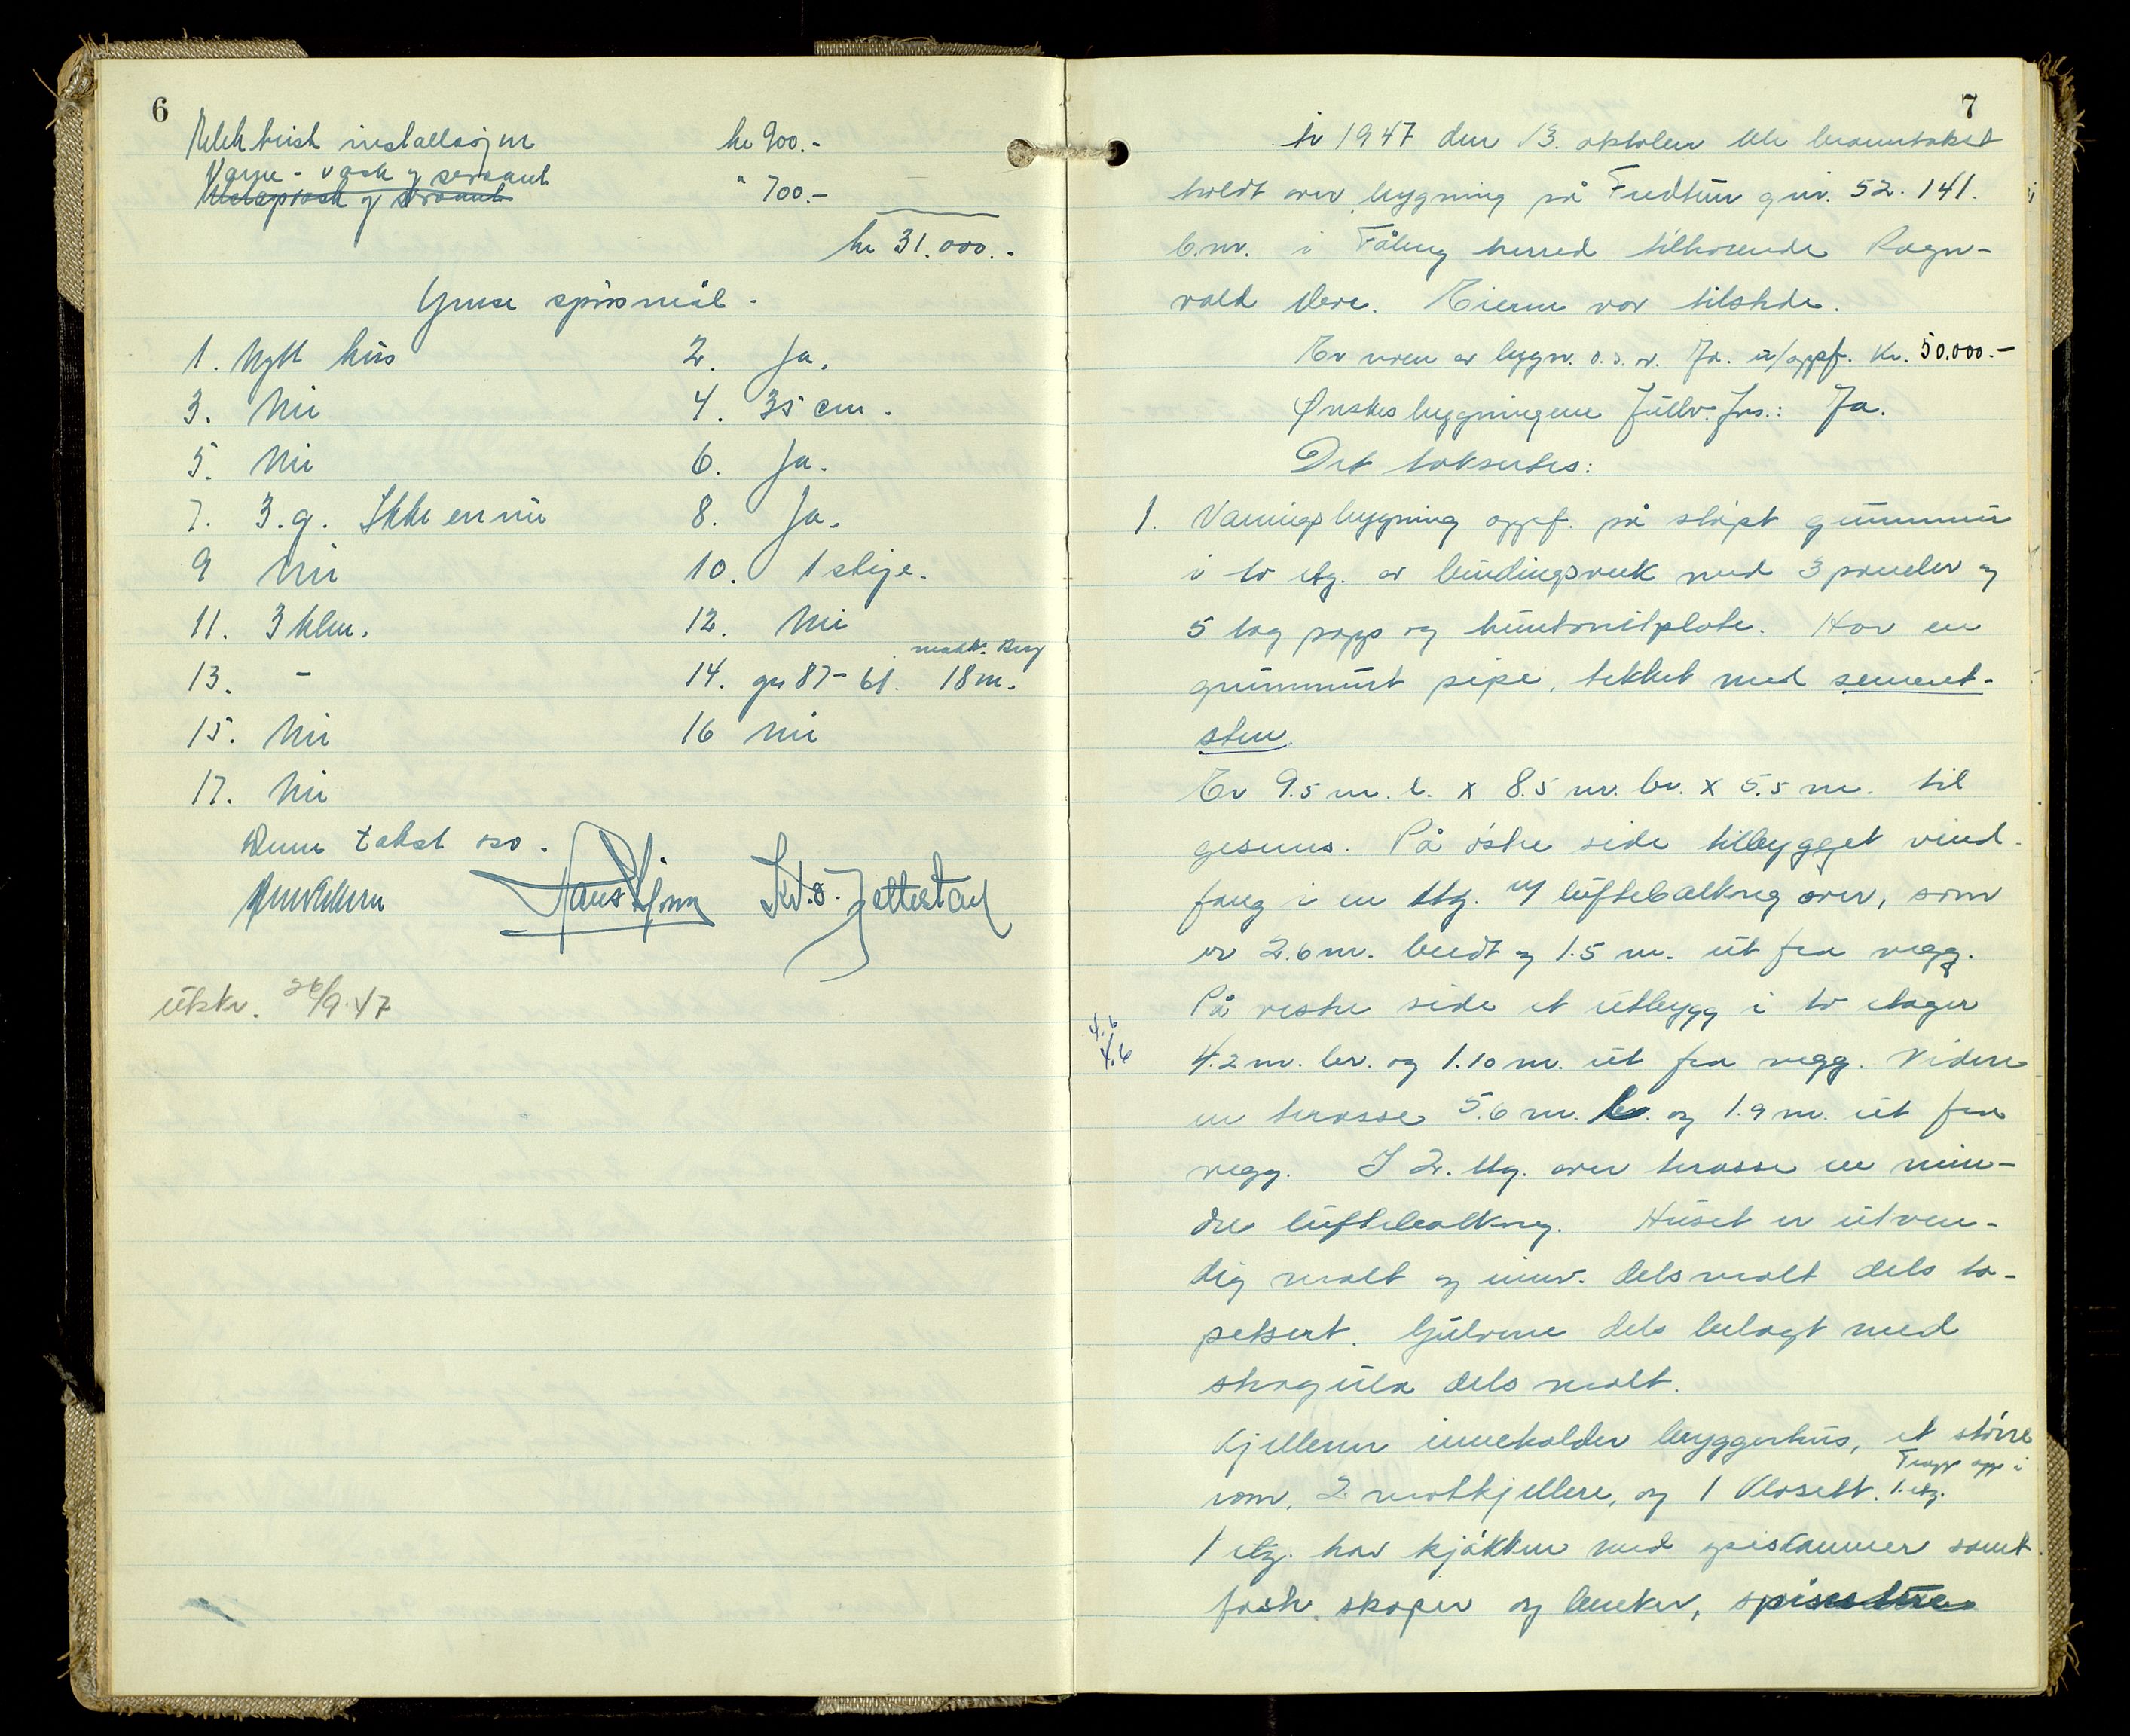 6
Elektrisk installasjon kr 900.-
Varme - vask og servant " 700.-
og servant
kr 31.000.-
Ymse spørsmål -
1. Nytt hus 2. Ja.
3. Nei 4. 35 cm.
5. Nei 6. Ja.
7. 3.g. Ikke ennu 8. Ja.
9 Nei 10. 1 stige.
11. 3 klm. 12. Nei
13. - 14. gr 87-61. 18 m.
15. Nei 16 nei
17. Nei
Denne takst
utskr. 26/9.47
7
År 1947 den 13. oktober ble branntakst
holdt over bygning på Fredtun gnr. 52. 141.
b.nr. i Fåberg herred tilhørende Ragn-
vald Vere. Eieren var tilstede.
Er noen av bygn. o.s.v. Ja. u/oppf. Kr. 50.000.-
Ønskes bygningene fullv. fors.: Ja.
Det taksertes:
1. Våningsbygning oppf. på støpt grunnmur
i to etg. av bindingsverk med 3 paneler og
5 lag papp og huntonitplate. Har en
grunnmurt pipe, tekket med sement-
sten.
Er 9.5 m. l. x 8.5 m. br. x 5.5 m. til
gesims. På østre side tilbygget vind-
fang i en etg. m/ luftebalkong over, som
er 2.6 m. bredt og 1.5 m. ut fra vegg.
På vestre side et utbygg i to etager
4.6
4.6
4.2 m. br. og 1.10 m. ut fra vegg. Videre
en terasse 5.6 m. br. og 1.9 m. ut fra
vegg. I 2. etg. over terasse en min-
dre luftebalkong. Huset er utven-
dig malt og innv. dels malt dels ta-
petsert. Gulvene dels belagt med
stragula dels malt.
Kjelleren inneholder bryggerhus, et større
rom, 2 matkjellere, og 1 klosett. Trapp opp i 1. etg.
1 etg. har kjøkken med spiskammer samt
fash. skaper og benker, spisestue